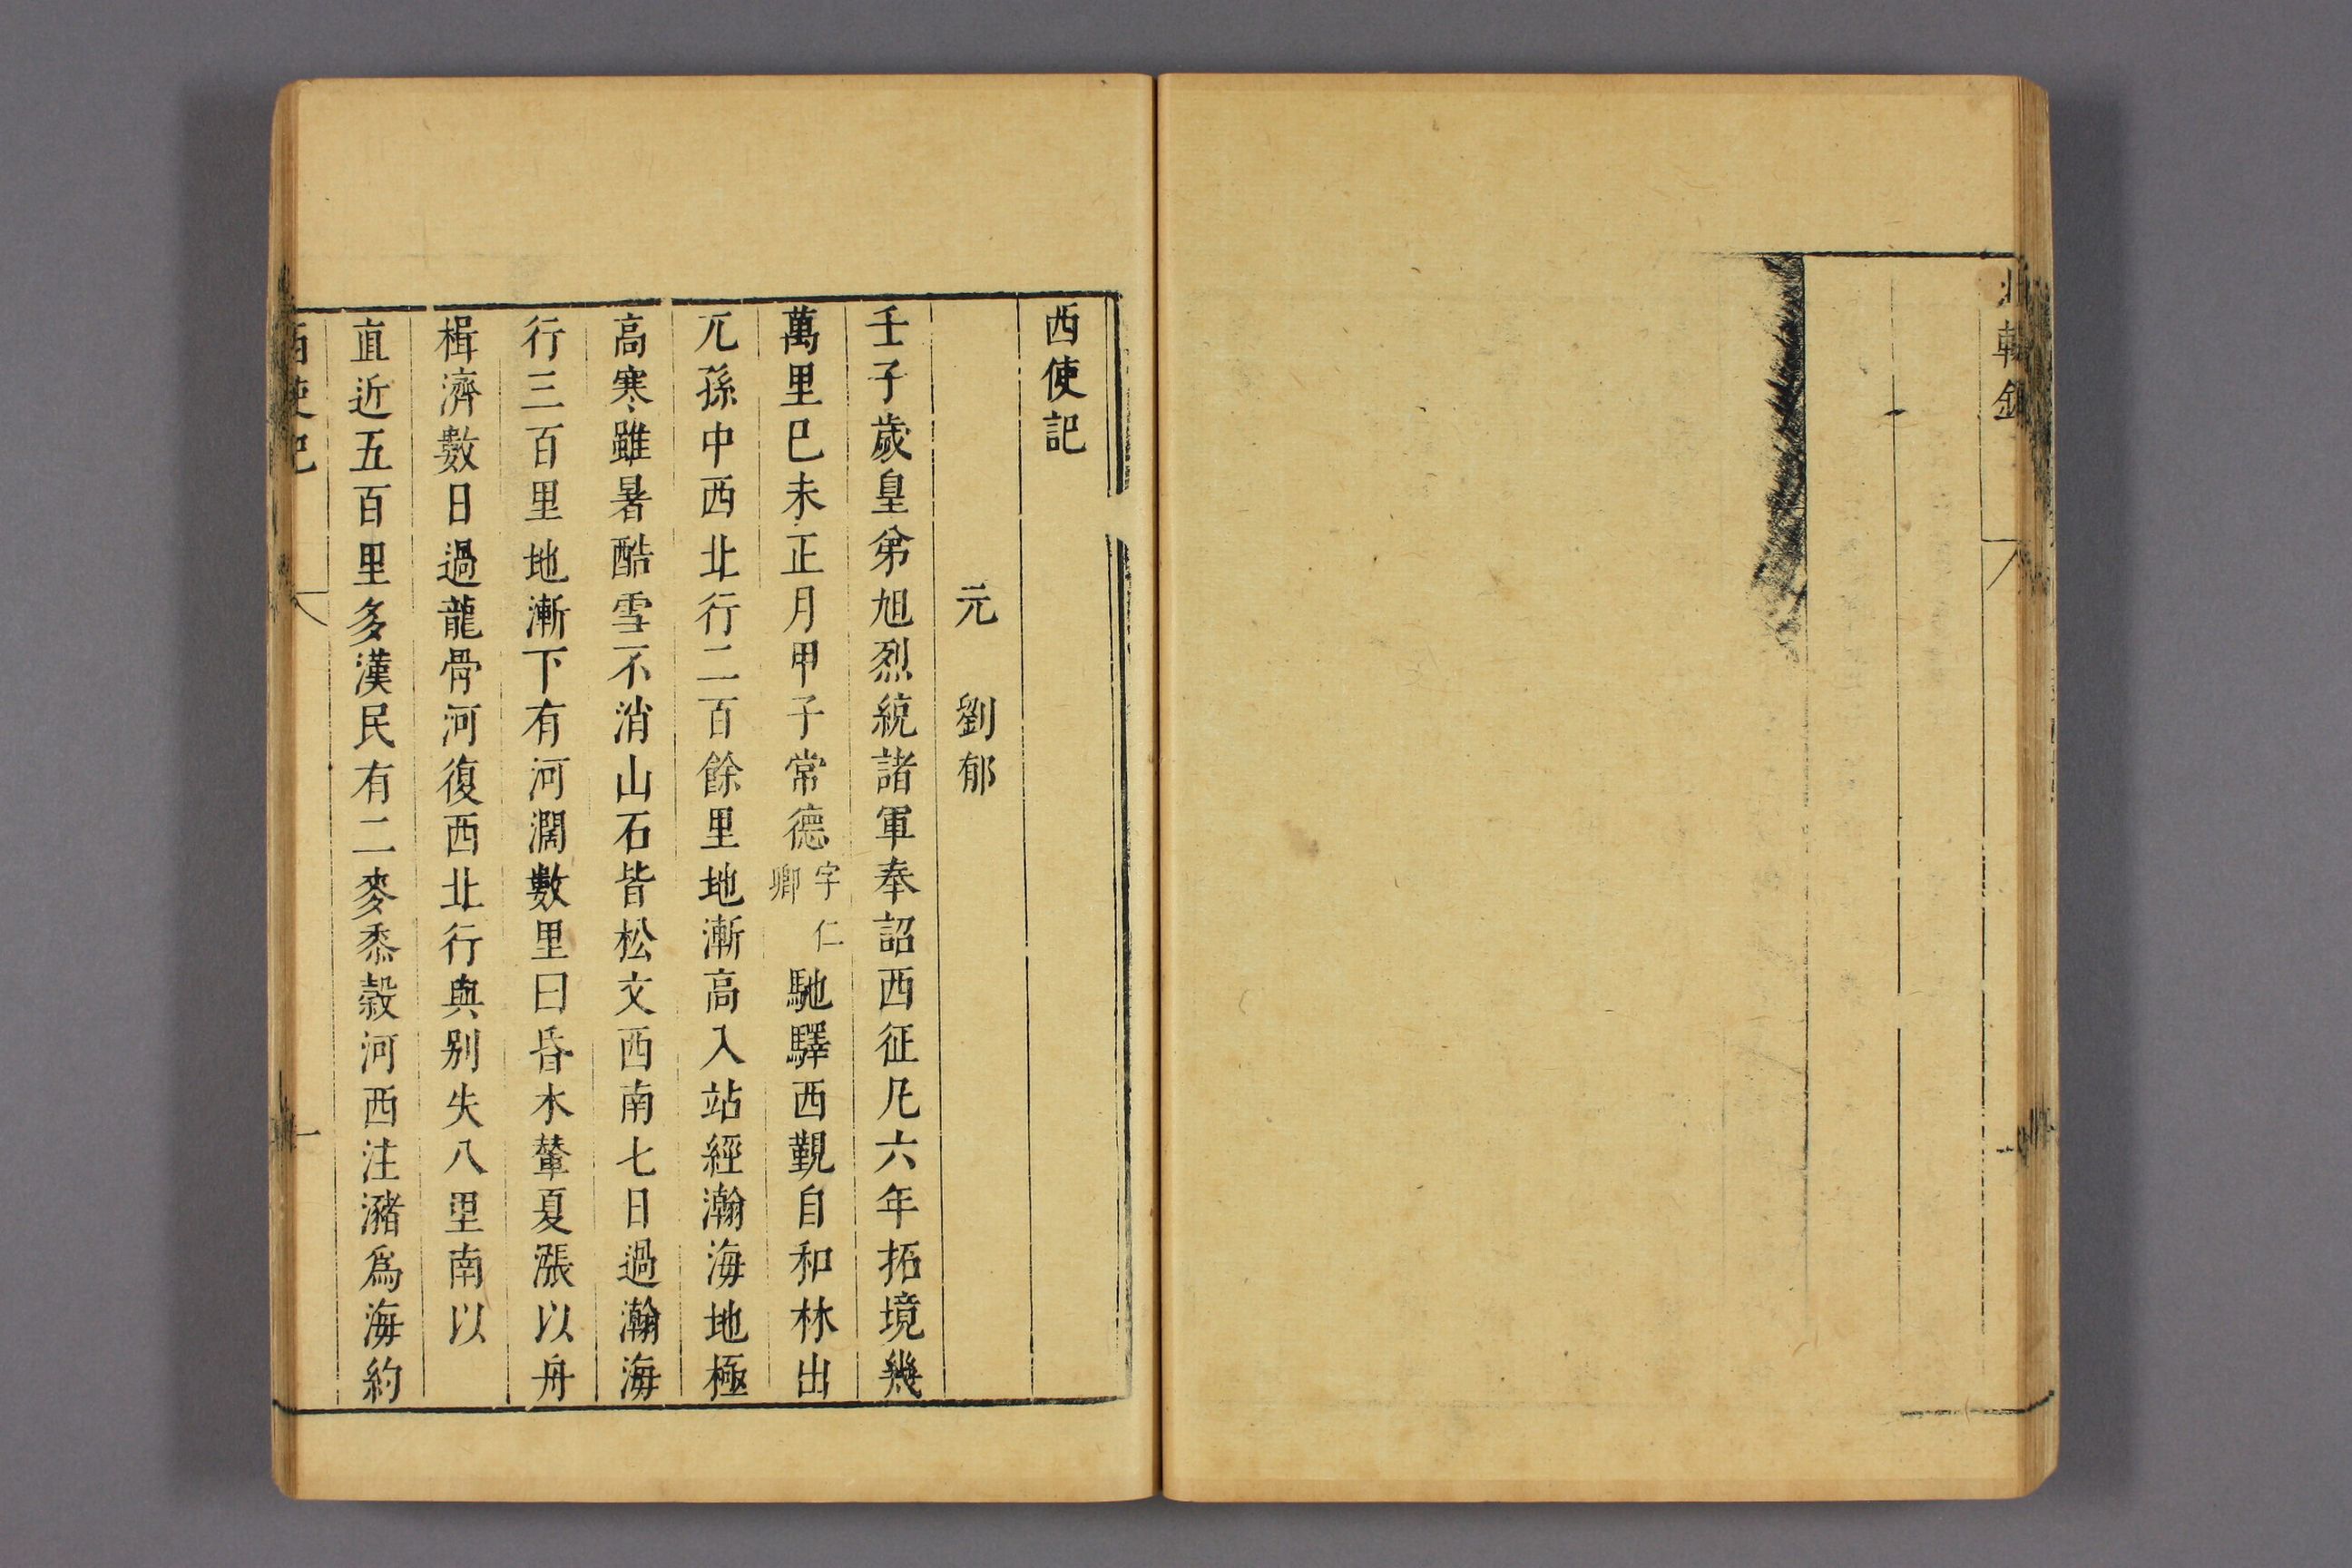 北轅錄
西使記
元 劉郁
壬子歲皇弟旭烈統諸軍奉詔西征凡六年拓境幾
萬里巳未正月甲子常德字仁卿馳驛西覲自和林出
兀孫中西北行二百餘里地漸高入站經瀚海地極
高寒雖暑酷雪不消山石皆松文西南七日過瀚海
行三百里地漸下有河濶數里曰昏木輦夏漲以舟
楫濟數日過龍骨河復西北行與别失八里南以
直近五百里多漢民有二麥黍穀河西注瀦爲海約
西使記
一